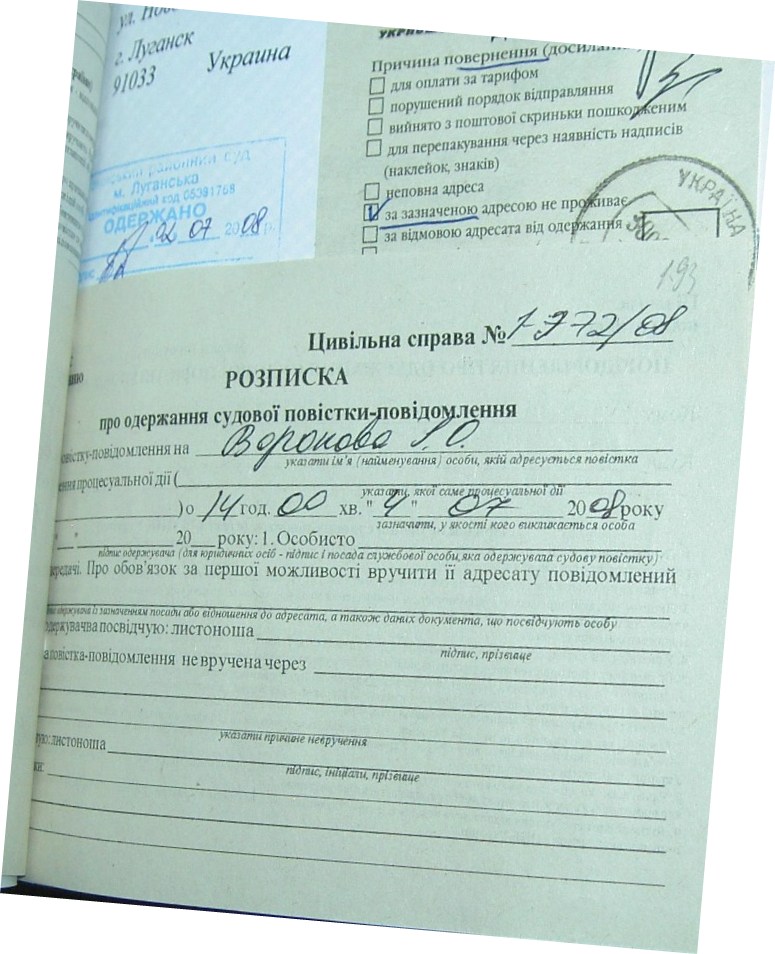 ул.
г. Луганск
91033 Украина
районний суд
м. Лугансько
ідентифікаційний код 05391768
ОДЕРЖАНО
02 07 2008 р.
Причина повернення (досилання)
для оплати за тарифом
порушений порядок відправляння
вийнято з поштової скриньки пошкодженим
для перепакування через наявність надписів
(наклейок, знаків)
неповна адреса
за зазначеною адресою не проживає
за відмовою адресата від одержання
УКРАЇНА
193
Цивільна справа №
РОЗПИСКА
про одержання судової повістки-повідомлення
повістку-повідомлення на Воронова
указати ім'я (найменування) особи, якій адресується повістка
процесуальної дії (
указати, якої саме процесуальної дії
) о 14 год. 00 хв. "4" 07 2008 року
зазначити, у якості кого викликається особа
" " 20 року: 1. Особисто
підпис одержувача (для юридичних осіб - підпис і посада службової особи, яка одержувала судову повістку)
передачі. Про обов'язок за першої можливості вручити її адресату повідомлений
одержувача із зазначенням посади або відношення до адресата, а також даних документа, що посвідчують особу
одержувачва посвідчую: листоноша
підпис, прізвище
повістка-повідомлення не вручена через
указати причине невручення
листоноша
підпис, ініціали, прізвище